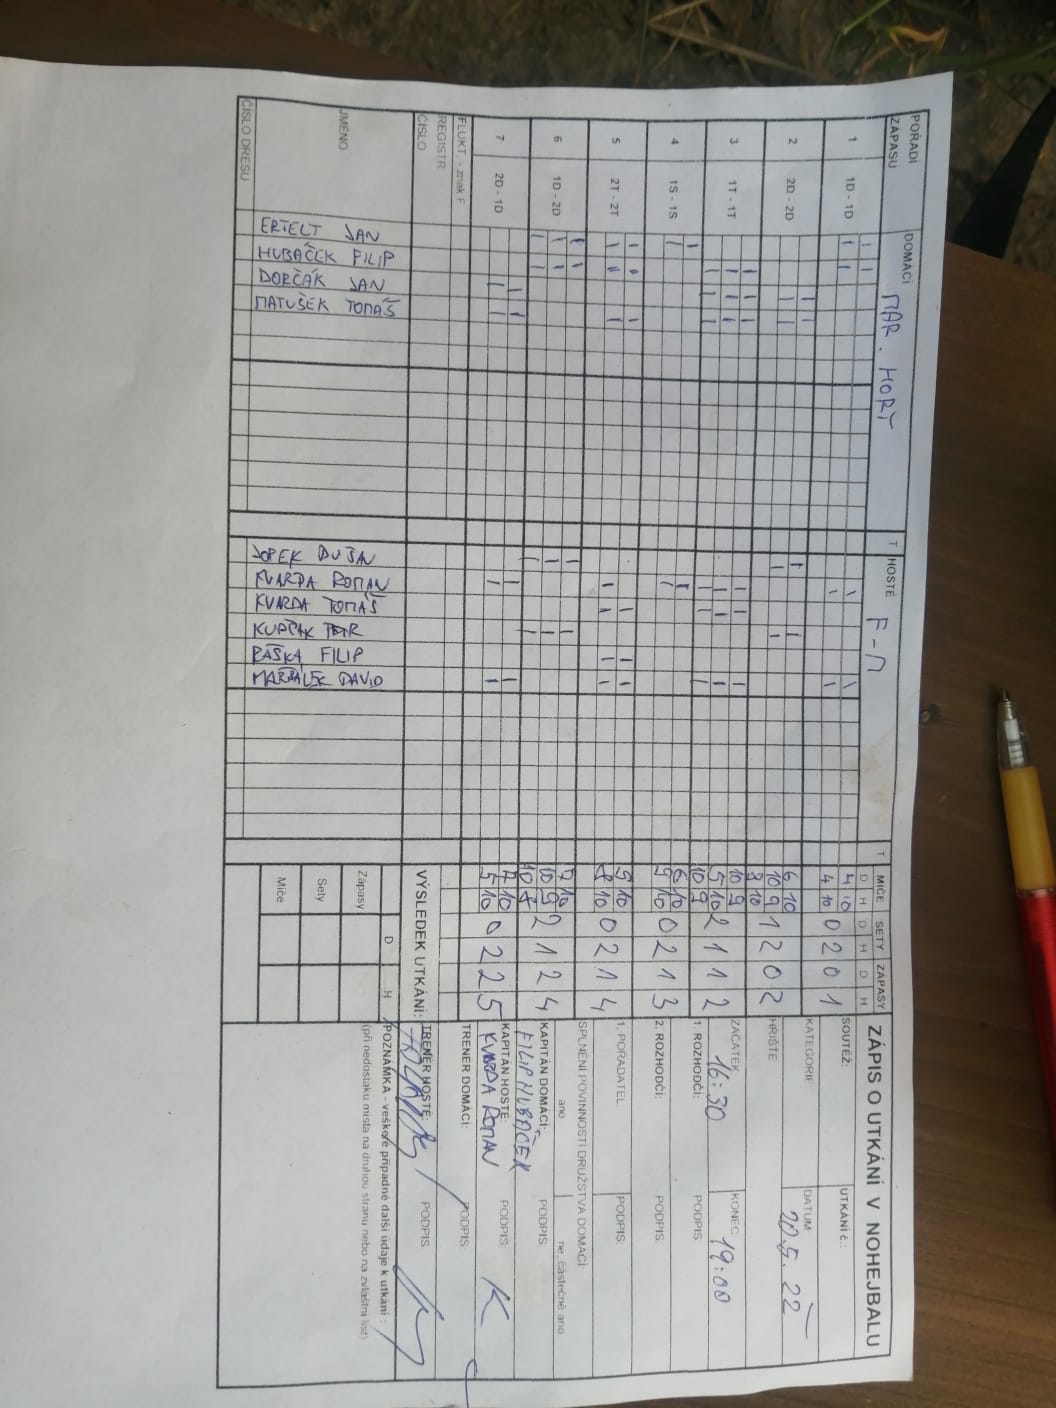 ZÁPIS O UTKÁNÍ V NOHEJBALU
SOUTĚŽ:
UTKÁNÍ č.:
KATEGORIE
DATUM
20.5. 22
HŘIŠTĚ
ZAČÁTEK
16:30
KONEC
19:00
1. ROZHODČÍ:
PODPIS
2. ROZHODČÍ:
PODPIS:
1. POŘADATEL
PODPIS:
SPLNĚNÍ POVINNOSTÍ DRUŽSTVA DOMÁCÍ
ano
ne, částečně ano
KAPITÁN DOMÁCÍ:
FILIP HUBÁČEK
PODPIS:
KAPITÁN HOSTÉ:
KVARDA ROMAN
PODPIS:
TRENÉR DOMÁCÍ:
PODPIS:
TRENÉR HOSTÉ:
PODPIS
POZNÁMKA - veškeré případné další údaje k utkání :
(při nedostatku místa na druhou stranu nebo na zvláštní list)
POŘADÍ ZÁPASU
DOMÁCÍ
MAR. HORY
T
HOSTÉ
F-M
T
MÍČE
SETY
ZÁPASY
D H D H D H
1 1D - 1D
4 10
4 10
0 2 0 1
2 2D - 2D
6 10
10 9
9 10
1 2 0 2
3 1T - 1T
10 9
5 10
10 9
2 1 1 2
4 1S - 1S
6 10
9 10
0 2 1 3
5 2T - 2T
9 10
8 10
0 2 1 4
6 1D - 2D
9 10
10 9
10 8
2 1 2 4
7 2D - 1D
7 10
5 10
0 2 2 5
FLUKT - znak F
REGISTR
ČÍSLO
JMÉNO
ČÍSLO DRESU
ERTELT JAN
HUBÁČEK FILIP
DORČÁK JAN
MATUŠEK TOMÁŠ
JOPEK DUŠAN
KVARDA ROMAN
KVARDA TOMÁŠ
KUPČÁK PETR
RAŠKA FILIP
DAVID
VÝSLEDEK UTKÁNÍ:
D H
Zápasy
Sety
Míče